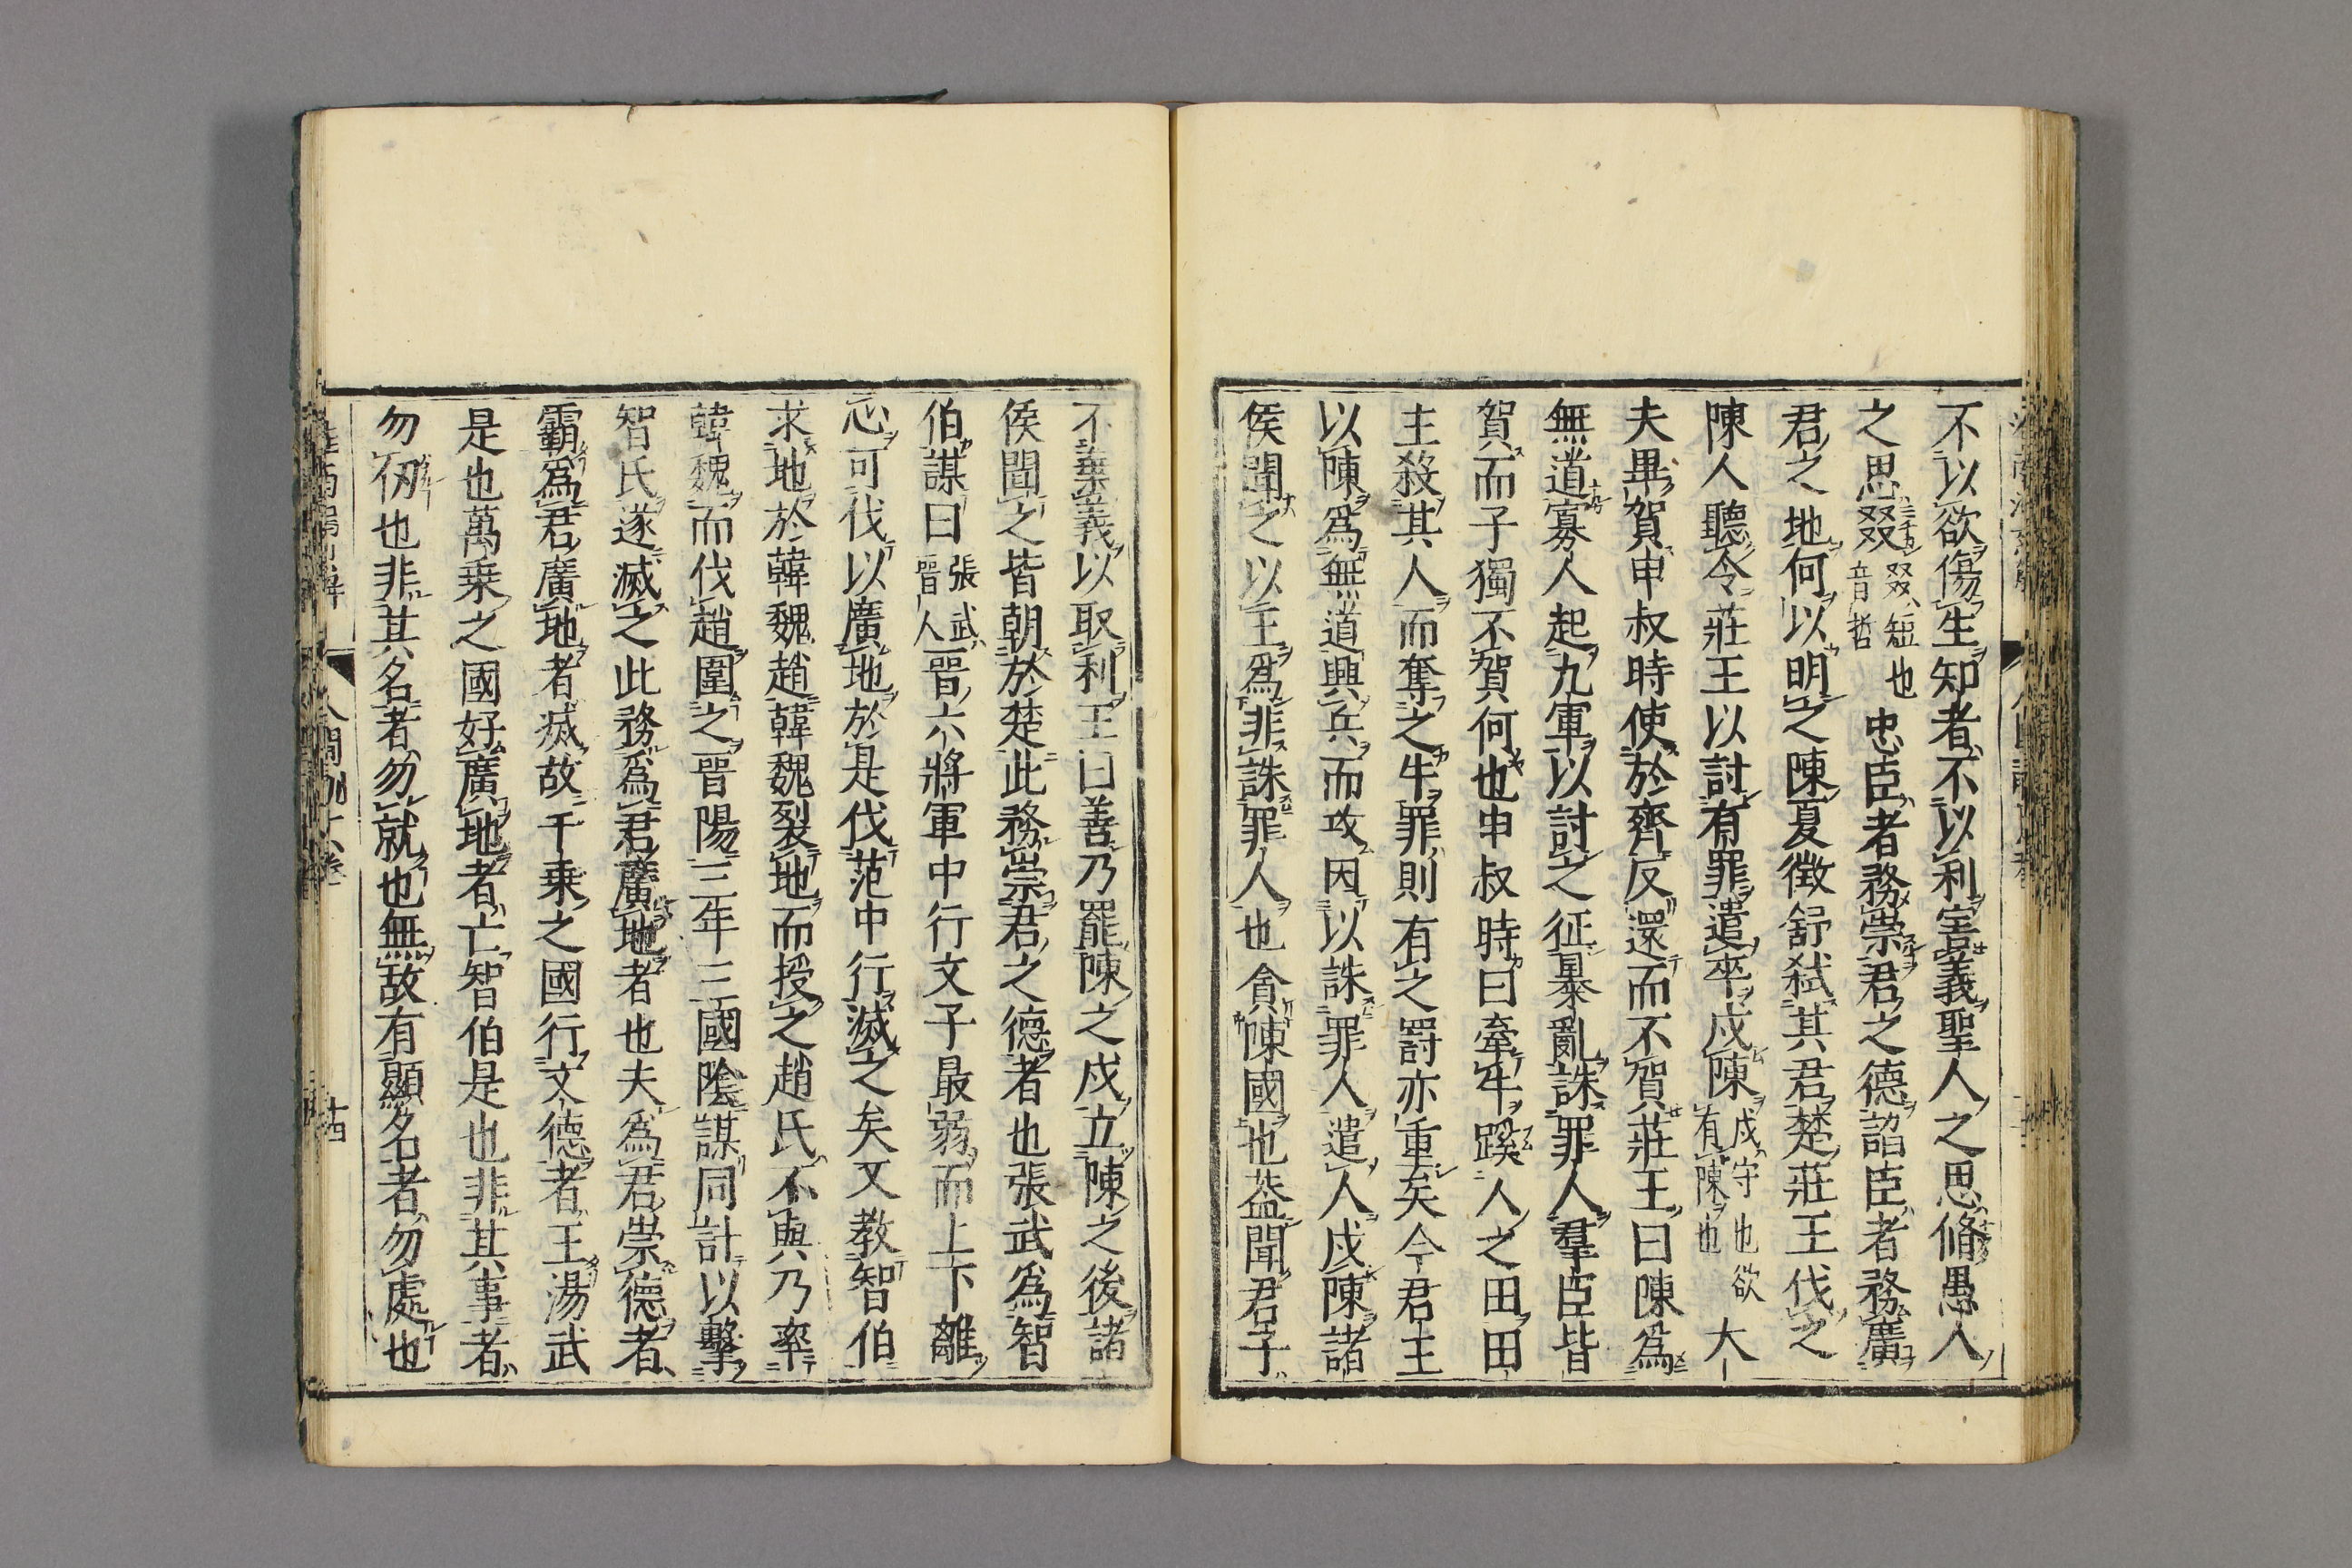 不以欲傷生知者不以利害義聖人之思脩愚人
之思叕叕短也音哲忠臣者務崇君之德諂臣者務廣
君之地何以明之陳夏徵舒弑其君楚莊王伐之
陳人聽令莊王以討有罪遣卒戍陳戍守也欲有陳也大
夫畢賀申叔時使於齊反還而不賀莊王曰陳爲
無道寡人起九軍以討之征暴亂誅罪人羣臣皆
賀而子獨不賀何也申叔時曰牽牛蹊人之田田
主殺其人而奪之牛罪則有之罸亦重矣今君王
以陳爲無道興兵而攻因以誅罪人遣人戍陳諸
侯聞之以王爲非誅罪人也貪陳國也葢聞君子
不棄義以取利王曰善乃罷陳之戍立陳之後諸
侯聞之皆朝於楚此務崇君之德者也張武爲智
伯謀曰張武晉人晉六將軍中行文子最弱而上下離
心可伐以廣地於是伐范中行滅之矣又教智伯
求地於韓魏趙韓魏裂地而授之趙氏不與乃率
韓魏而伐趙圍之晉陽三年三國陰謀同計以擊
智氏遂滅之此務爲君廣地者也夫爲君崇德者
霸爲君廣地者滅故千乗之國行文德者王湯武
是也萬乗之國好廣地者亡智伯是也非其事者
勿仞也非其名者勿就也無故有顯名者勿處也
人間訓十八卷 十四